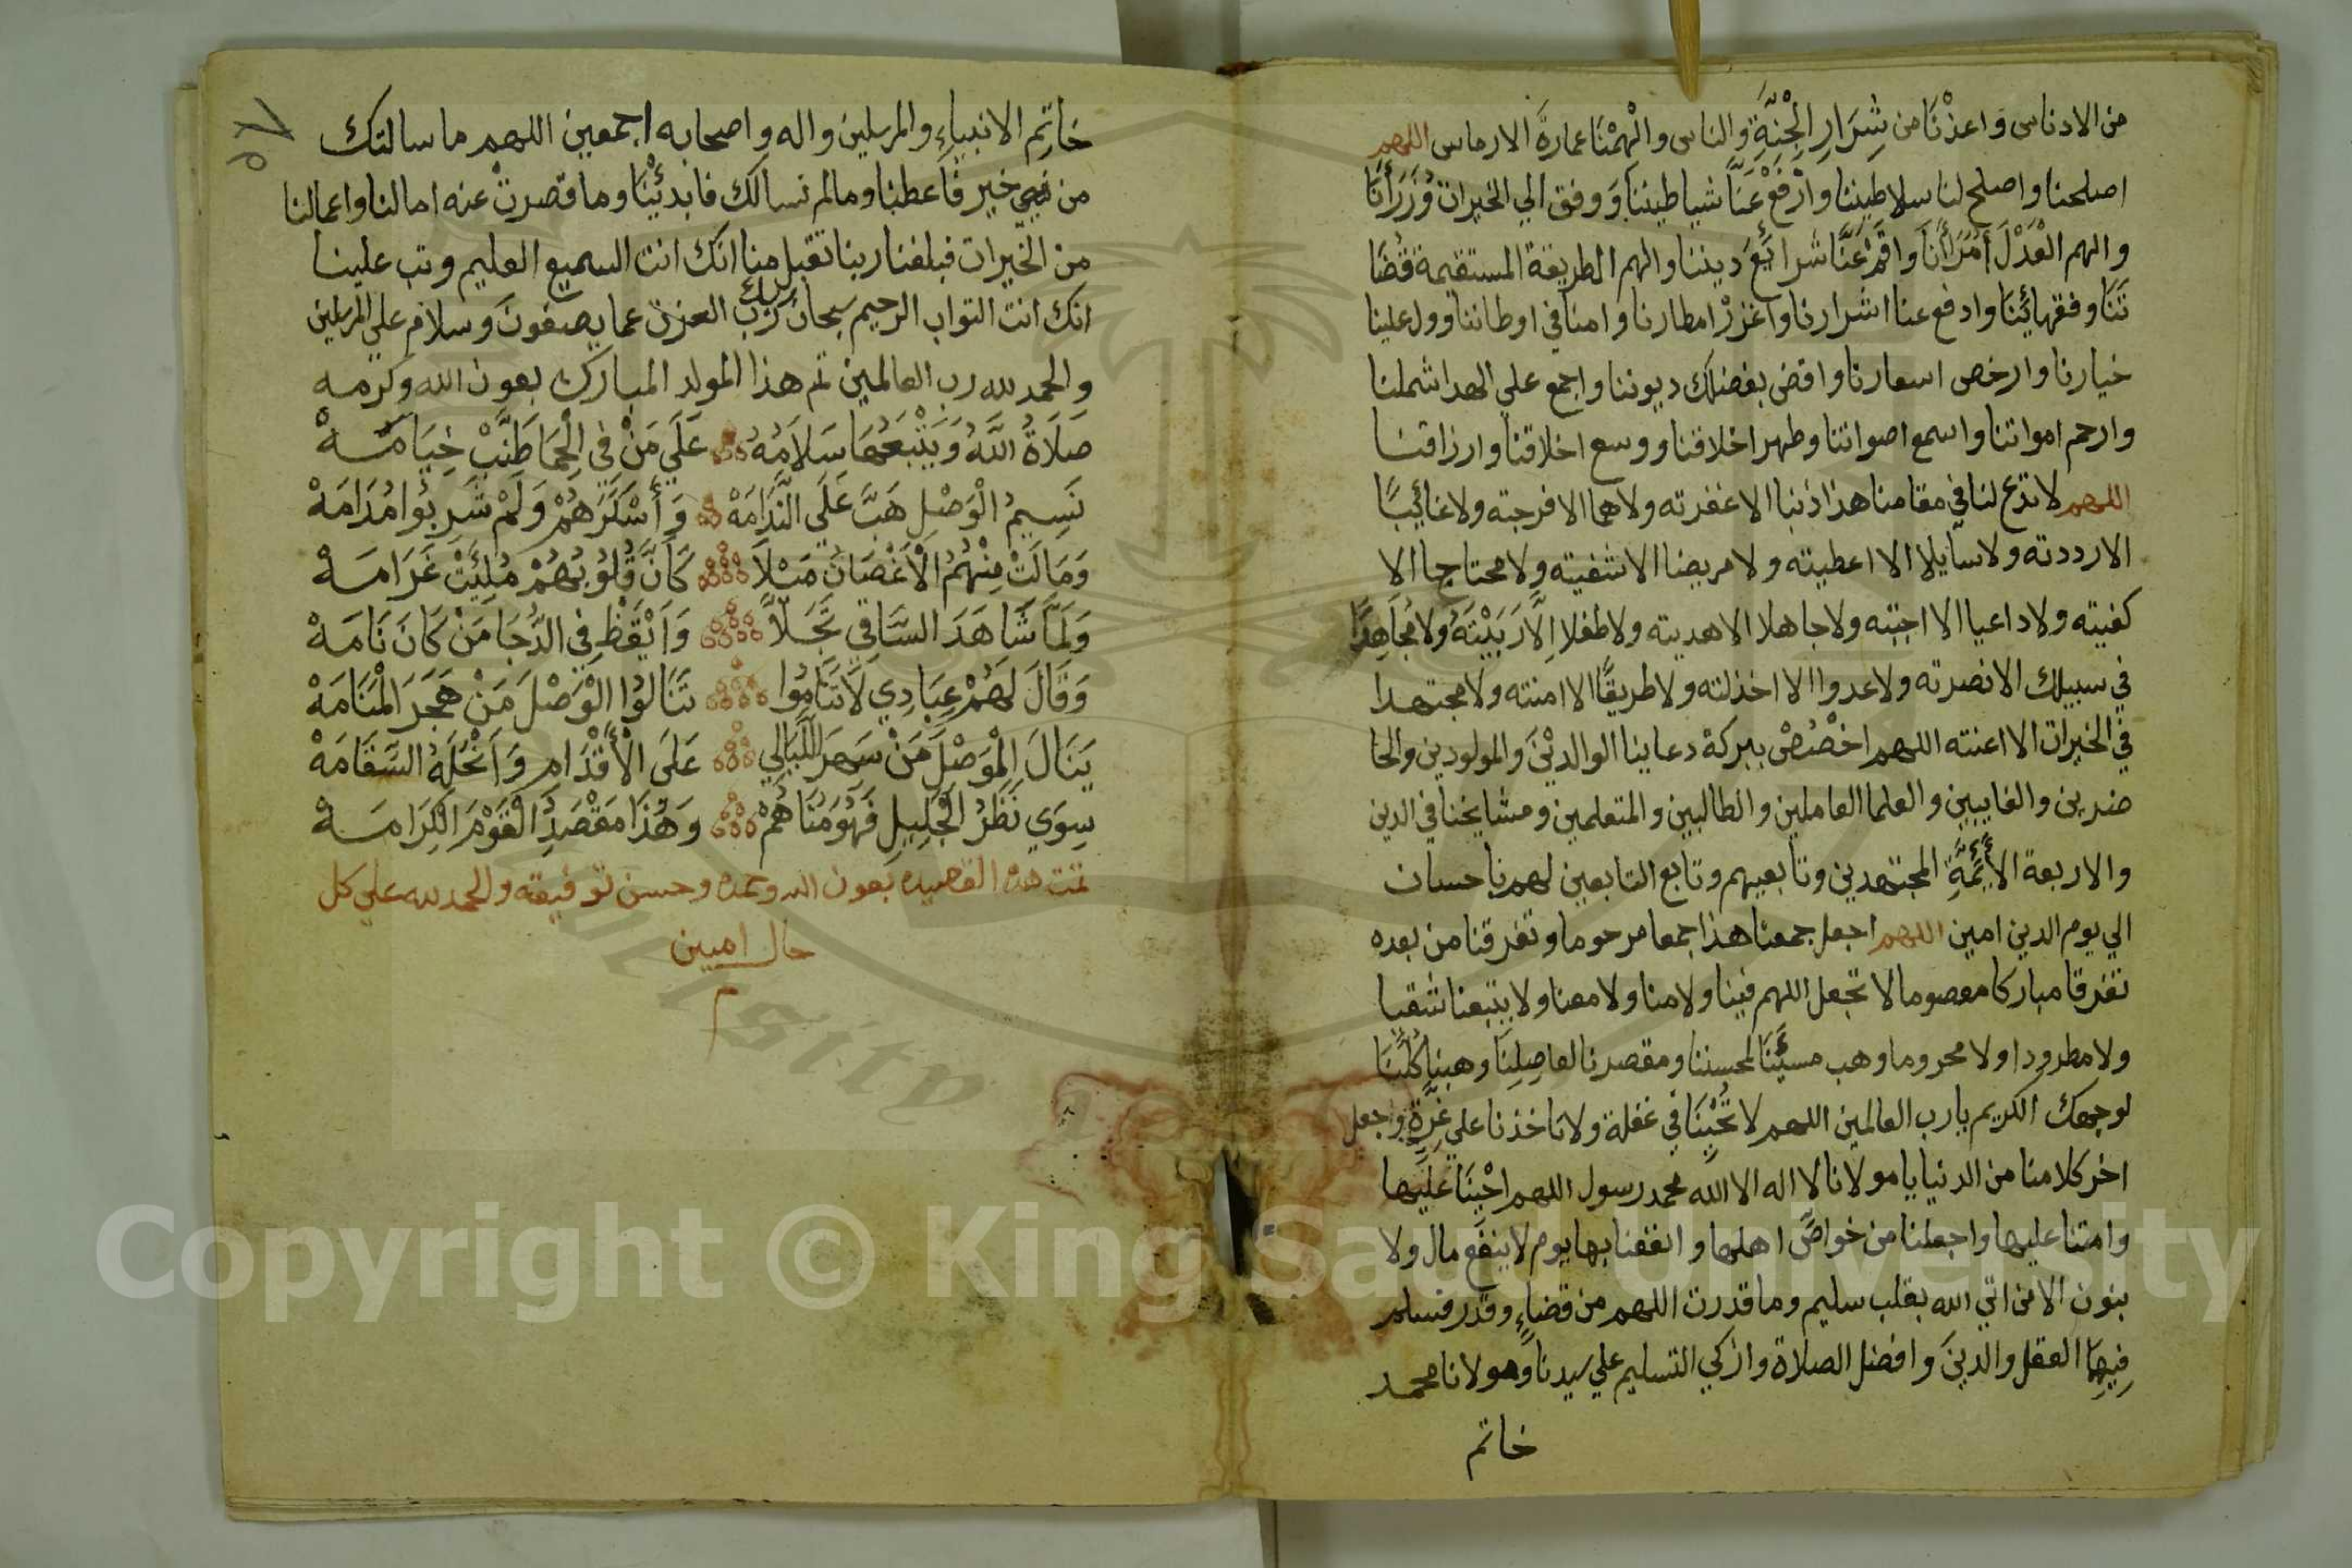 من الادناس وَاعذْنَا من شِرَارِ الْجِنَّةِ والناس والْهِمْنَا عمارةَ الارماس اللهم
اصلحنا واصلح لنا سلاطيننا وارْفَعْ عَنَّا شياطيننا وَوفق الي الخيرات وُزَرَأَنَا
والهم الْعَدْلَ أُمَرَأَنَا وَاقِمْ عَنَّا شَرايَعَ ديننا والهم الطريقة المستقيمة قُضَا
تَنَا وفقهائَنَا وادفع عنا اشرارنا واغزرْ امطارنا وامنا في اوطاننا وول علينا
خيارنا وارخص اسعارنا واقض بفضلك ديوننا واجمع علي الهدا شملنا
وارحم امواتنا واسمع اصواتنا وطهر اخلاقنا ووسع اخلاقنا وارزاقنا
اللهم لا تدع لنا في مقامنا هذا ذنبا الا غفرته ولا هما الا فرجته ولا غائِبًا
الا رددته ولا سايلا الا اعطيته ولا مريضا الا شفيته ولا محتاجا الا
كفيته ولا داعيا الا اجبته ولا جاهلا الا هديته ولا طفلا اِلاَّ رَبَيْتَهُ ولا مُجَاهِدًا
في سبيلك الا نصرته ولا عدوا الا اخذلته ولا طريقًا الا امنته ولا مجتهدا
في الخيرات الا اعنته اللهم اخْصُصْ ببركة دعاينا الوالديْنَ والمولودين والحا
ضرين والغايبين والعلما العاملين والطالبين والمتعلمين ومشايخنا في الدين
والاربعة الأَيِمَّةِ المجتهدين وتابعيهم وتابع التابعين لهم باحسان
الي يوم الدين امين اللهم اجعل جمعنا هذا جمعا مرحوما وتفرقنا من بعده
تفرقا مباركا معصوما لا تجعل اللهم فينا ولا منا ولا معنا ولا يتبعنا شقيا
ولا مطرودا ولا محروما وهب مسيَّنَا لمحسننا ومقصرنا لفاصِلِنَا وهبنا كُلَّنَا
لوجهك الكريم يا رب العالمين اللهم لا تُحْيِنَا في غفلة ولا تاخذنا علي غِرَّةٍ واجعل
اخر كلامنا من الدنيا يا مولانا لا اله الا الله محمد رسول اللهم احْيِنَا عَلَيها
وامتنا عليها واجعلنا من خواصِّ اهلها وانفعنا بها يوم لا ينفع مال ولا
بنون الا من اتي الله بقلب سليم وما قدرت اللهم من قضاءٍ وقدر فسلم
فِيهِا العقل والدينَ وافضل الصلاة وازكي التسليم علي سيدنا ومولانا محمد
خاتم
خاتِم الانبياءِ والمرسلين واله واصحابه اجمعين اللهم ما سالتك
من خير فاعطنا وما لم نسالك فابدئْنَا وما قصرتْ عنه امالنا واعمالنا
من الخيرات فبلغنا ربنا تقبل منا انك انت السميع العليم وتب علينا
انك انت التواب الرحيم سبحان ربك رَبِّ العزة عما يصفون وسلام علي المرسلين
والحمد لله رب العالمين تم هذا المولد المبارك بعون الله وكرمه
صَلَاةُ اللَّهُ وَيَتْبَعُهَا سَلَامُهُ عَلَي مَنْ فِي الْحِمَا طَنَّبْ خِيَامَهْ
نَسِيمُ الْوَصْلِ هَبَّ عَلَي النَّدَامَهْ وَأَسْكَرَهُمْ وَلَمْ شَرِبُوا مُدَامَهْ
وَمَالَتْ مِنْهُمُ الْأَغْصَانُ مَيْلاً كَأَنَّ قُلُوبُهُمْ مُلِئَتْ غَرَامَهْ
وَلَمَّا شَاهَدَ السَّاقِي تَجَلاَّ وَاَيْقَظْ فِي الدُّجَا مَنْ كَانَ نَامَهْ
وَقَالَ لَهُمْ عِبَادِي لَا تَنَامُوا تَنَالُوا الْوَصْلَ مَنْ هَجَرَ الْمَنَامَهْ
يَنَالَ الْوَصْلَ مَنْ سَهَرَ اللَّيَالِي عَلَى الْأَقْدَامِ وَاَنْحَلَهُ السَّقَامَهْ
سِوَي نَظَرُ الْجَلِيلِ فَهُوَ مُنَاهُمْ وَهَذَا مَقْصَدُ الْقَوْمَ الْكِرَامَهْ
تمت هذه القصيده بعون الله وحمده وحسن توفيقه والحمد لله علي كل
حال امين
م
Copyright © King Saud University